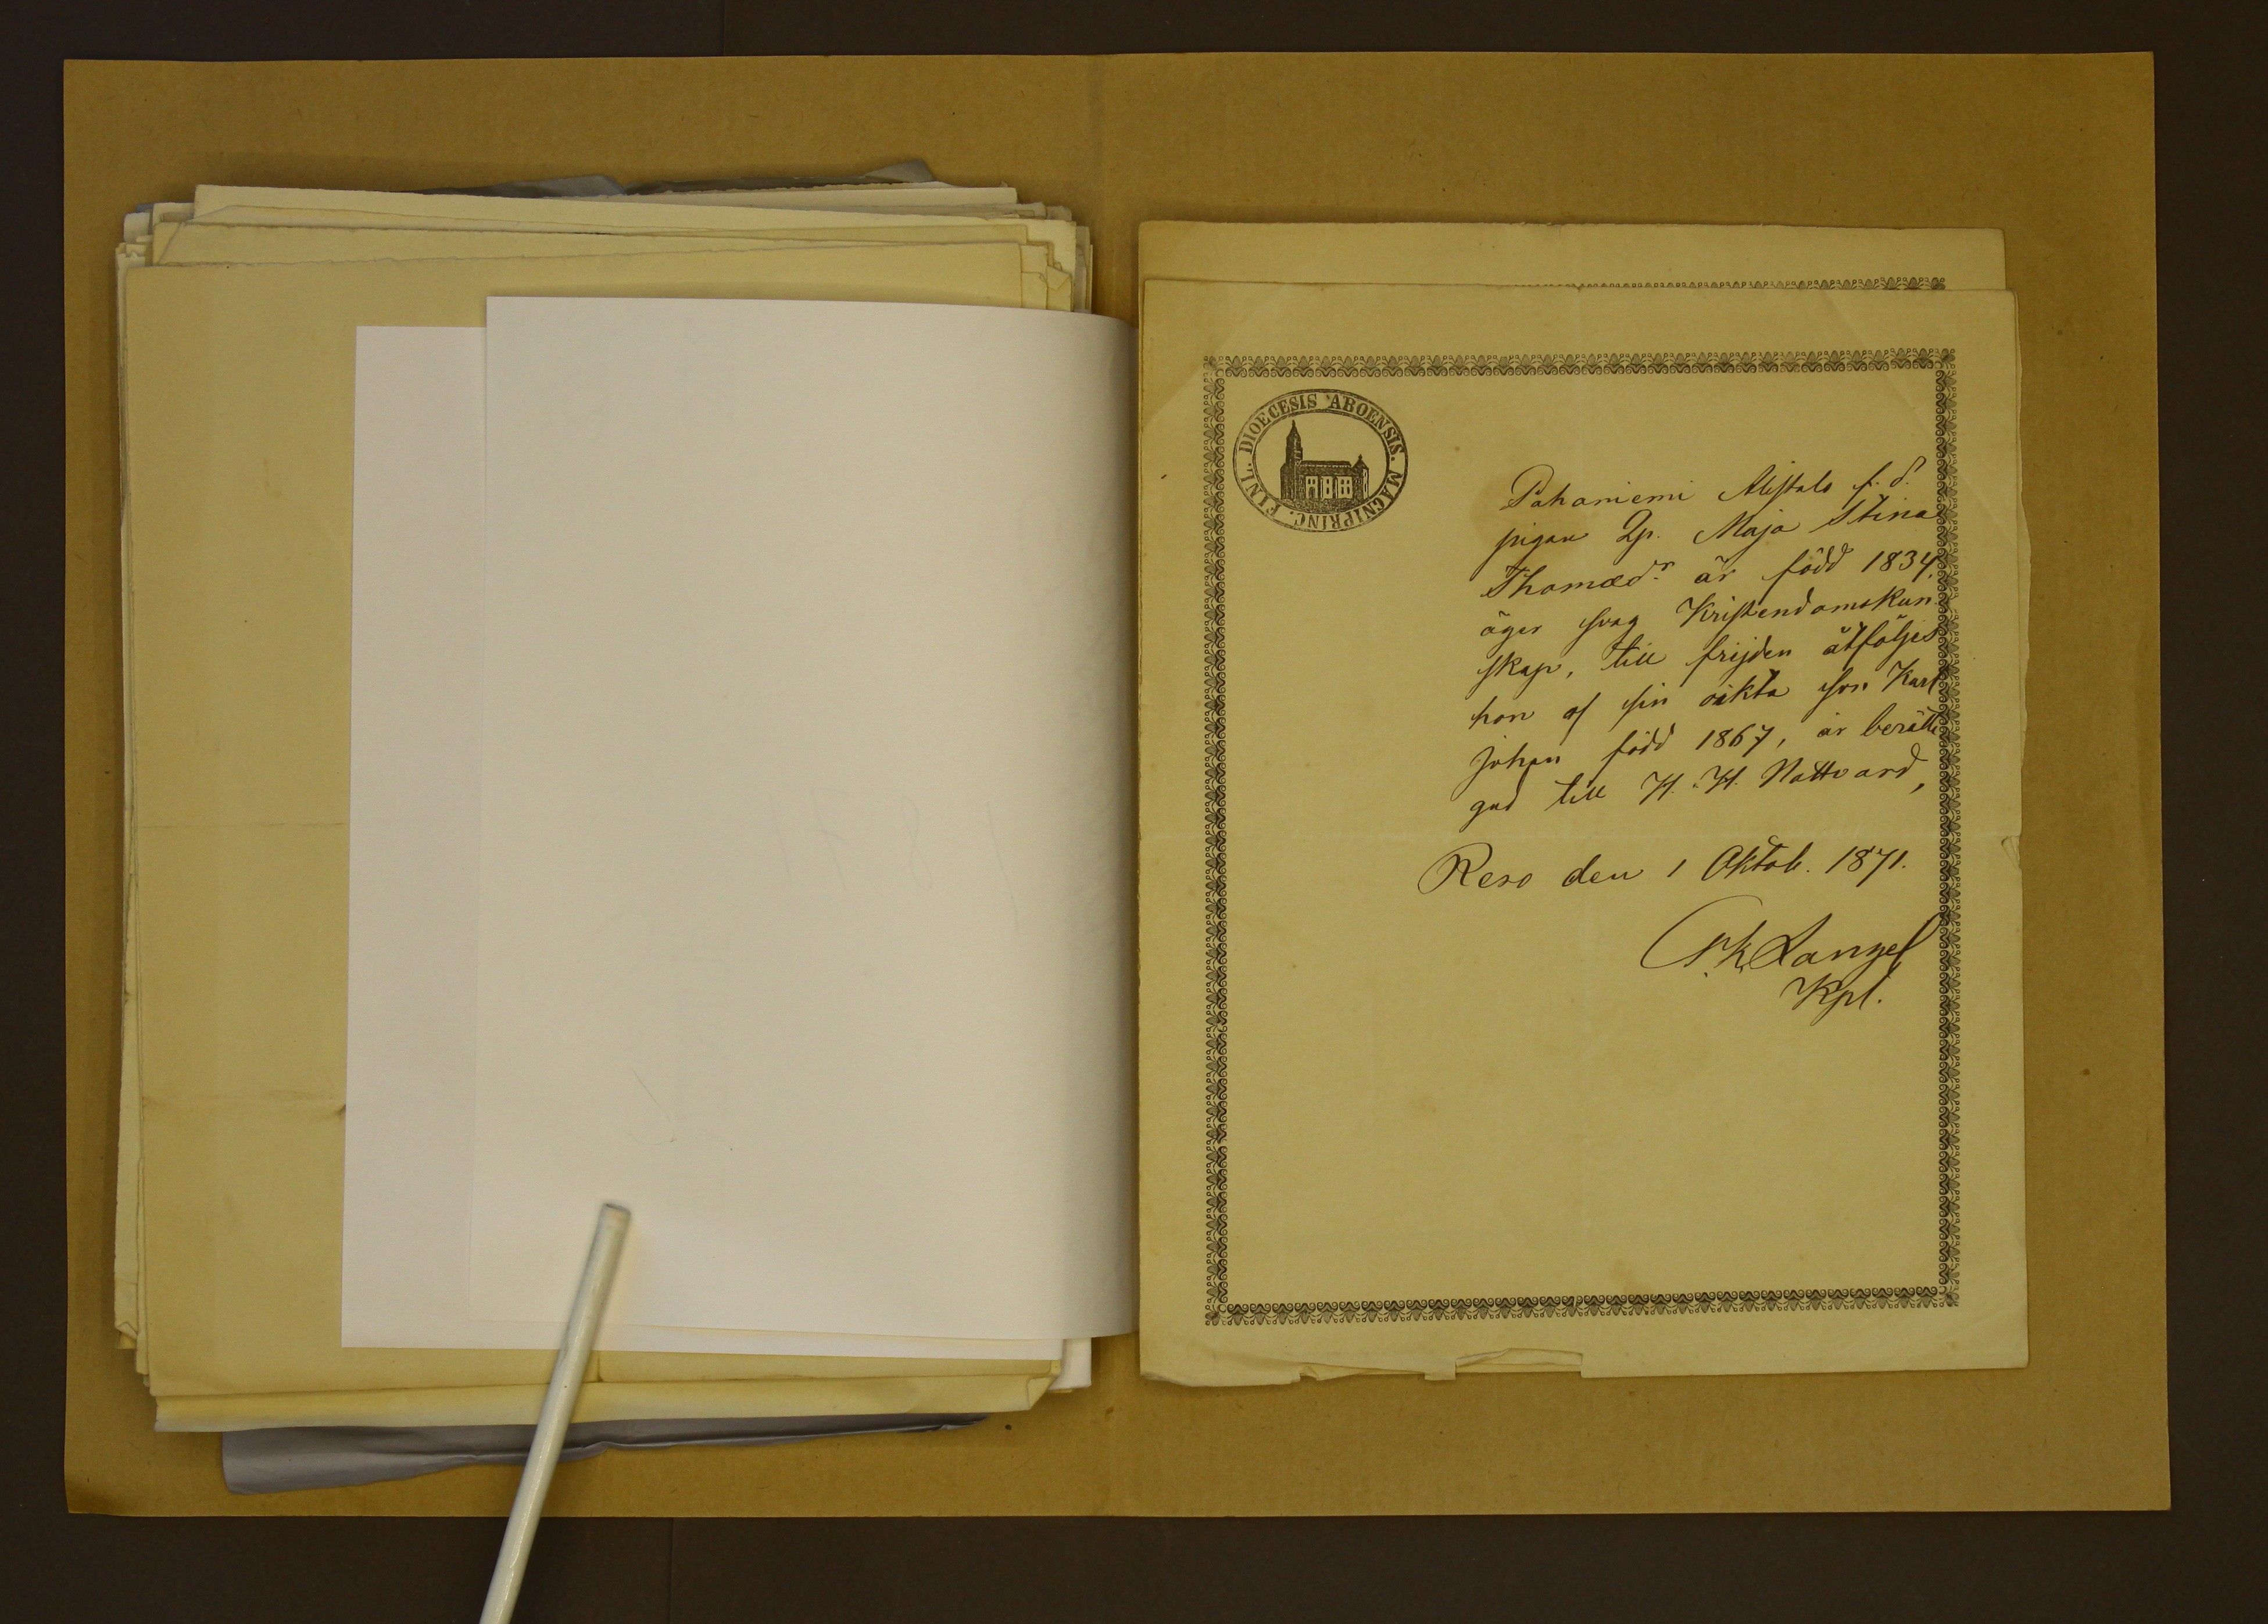 DIOECESIS ABOENSIS. MAGNIPRINC. FINL.
Pahaniemi Alistalo f. d.
pigan Qp. Maja Stina
Thomædr. är född 1834,
äger svag Kristendomskun
skap, till frijden åtföljes
hon af sin oäkta son Karl
Johan född 1867, är berätti
gad till H. H. Nattvard,
Reso den 1 Oktob. 1871.
Langel
Kpl.